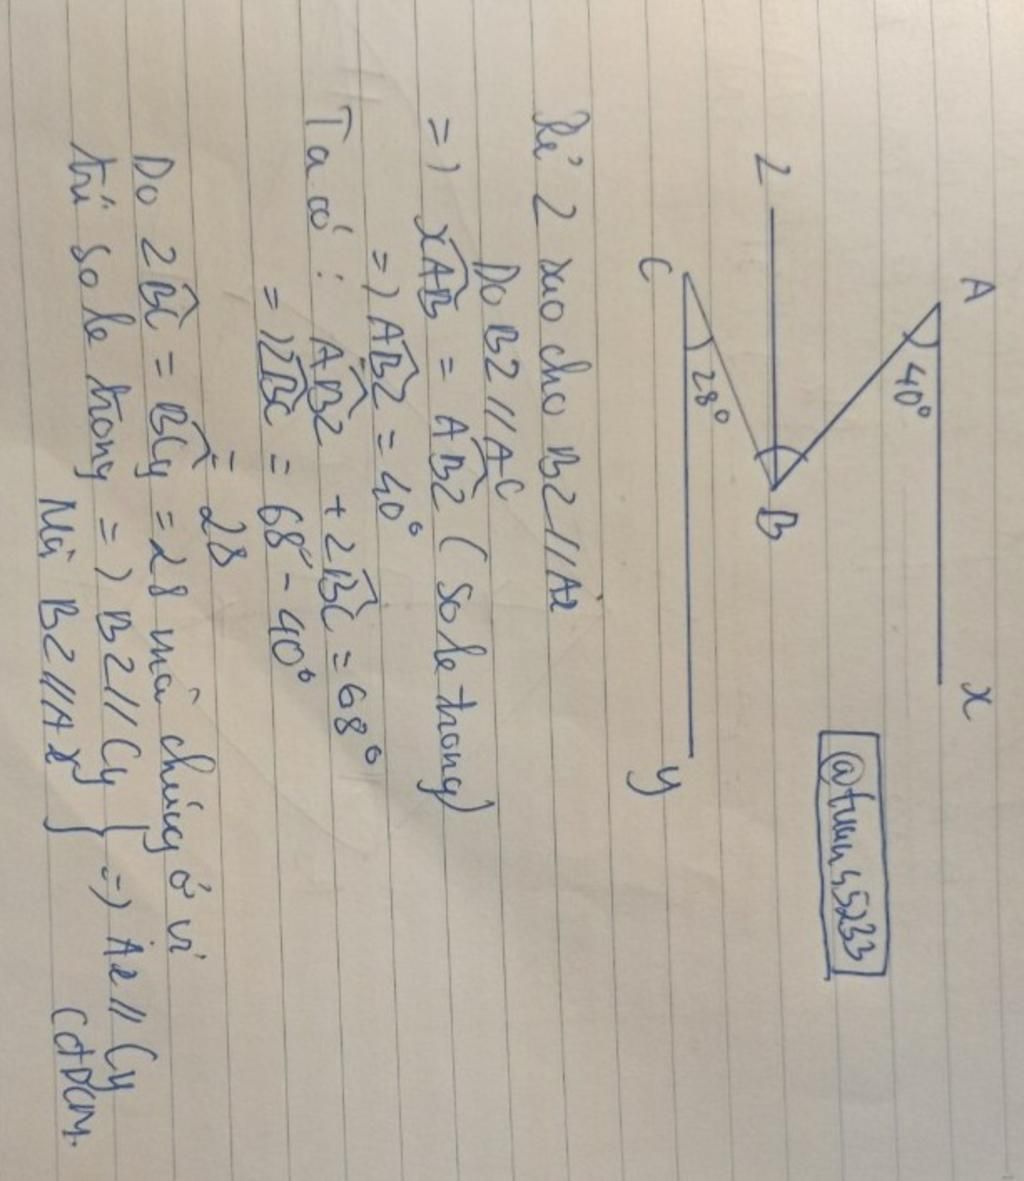 A
x
40°
Z
B
C
28°
y
Kẻ Z sao cho BZ // Ax
Do BZ // AC
=) xAB = ABZ ( so le trong)
=) ABZ = 40°
Ta có : ABZ + ZBC = 68°
=) ZBC = 68° - 40°
= 28
Do ZBC = BCy = 28 mà chúng ở vị
trí so le trong =) BZ // Cy
Mà BZ // Ax } =) Ax // Cy
(đpcm.